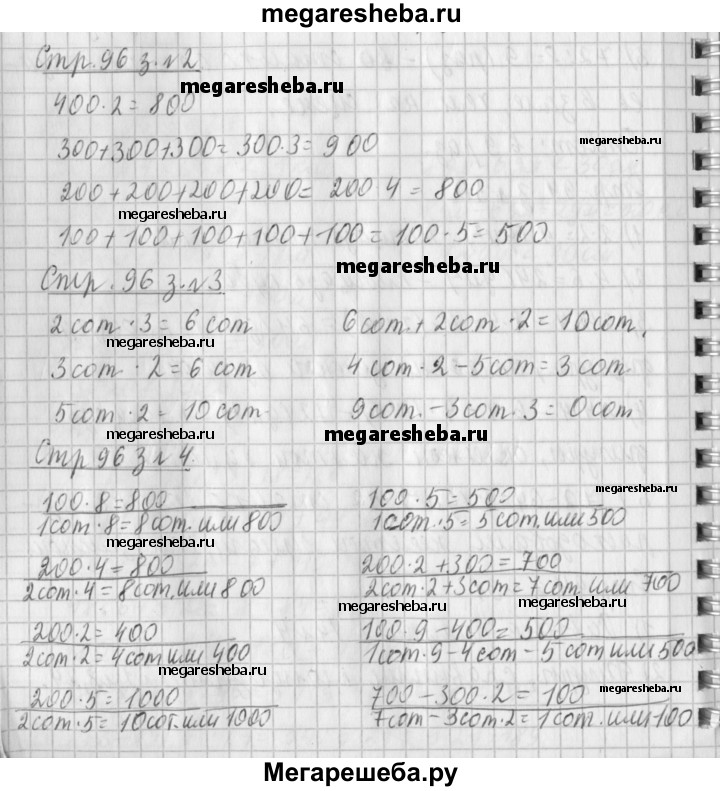 megaresheba.ru
Стр. 96 з. №2
megaresheba.ru
400·2=800
300+300+300=300·3=900
megaresheba.ru
200+200+200+200=200·4=800
megaresheba.ru
100+100+100+100+100=100·5=500
megaresheba.ru
Стр. 96 з. №3
2 сот·3=6 сот
6 сот.+2 сот·2=10 сот.
megaresheba.ru
3 сот·2=6 сот
4 сот·2-5 сот=3 сот
5 сот·2=10 сот
9 сот.-3 сот·3=0 сот
megaresheba.ru
megaresheba.ru
Стр 96 з №4.
megaresheba.ru
100·8=800
1 сот·8=8 сот. или 800
100·5=500
1 сот.·5=5 сот. или 500
megaresheba.ru
200·4=800
2 сот·4=8 сот. или 800
200·2+300=700
2 сот·2+3 сот=7 сот или 700
megaresheba.ru
megaresheba.ru
megaresheba.ru
200·2=400
2 сот·2=4 сот или 400
100·9-400=500
1 сот·9-4 сот-5 сот или 500
megaresheba.ru
megaresheba.ru
200·5=1000
2 сот·5=10 сот. или 1000
700-300·2=100
7 сот-3 сот·2=1 сот. или 100
Мегарешеба.ру